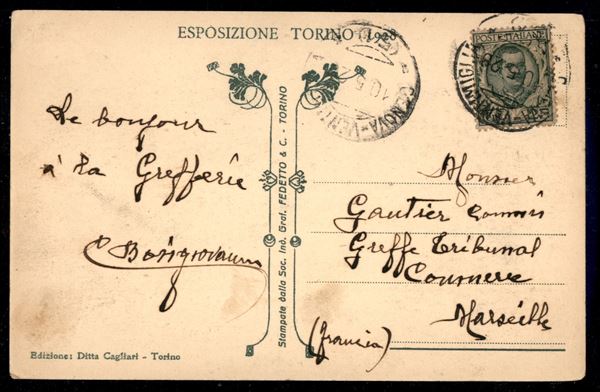 ESPOSIZIONE TORINO 1928
POSTE ITALIANE
GENOVA-VENTIMIGLIA
10.5
Le bonjour
à la Grefferie
Stampate dalla Soc. Ind. Graf. FEDETTO & C. - TORINO
Monsieur
Gautier Commis
Greffe Tribunal
Commerce
Marseille
(Francia)
Edizione: Ditta Cagliari - Torino